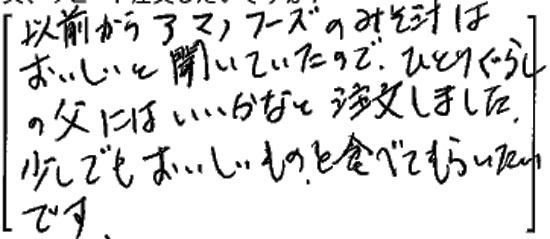 以前からアマノフーズのみそ汁は
おいしいと聞いていたので、ひとりぐらし
の父にはいいかなと注文しました。
少しでもおいしいものを食べてもらいたい
です。